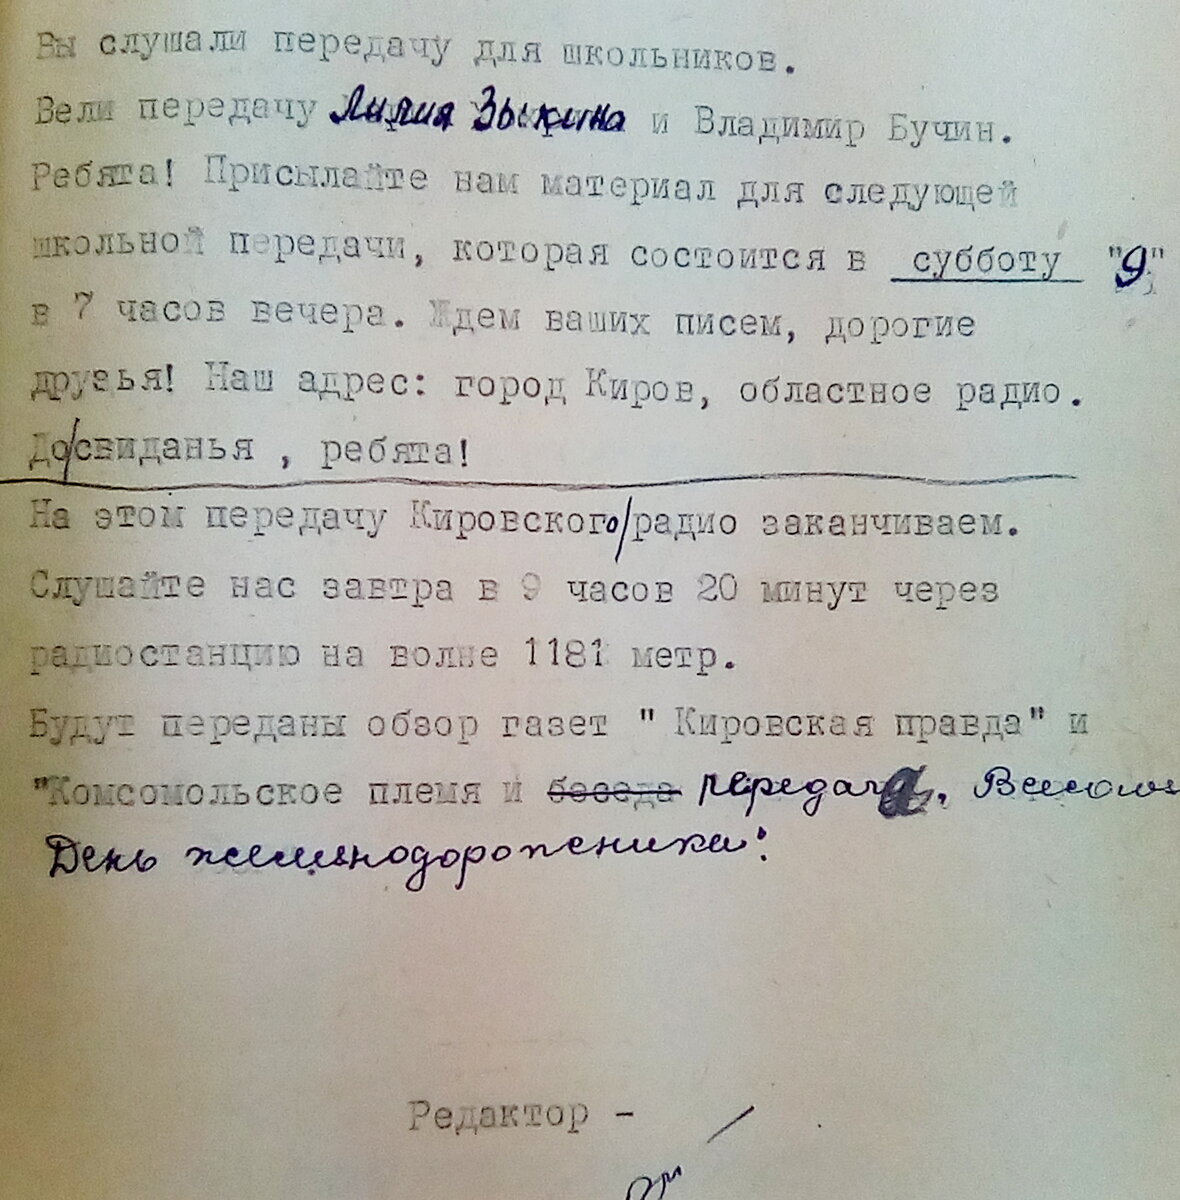 Вы слушали передачу для школьников.
Вели передачу Лилия Зыкина и Владимир Бучин.
Ребята! Присылайте нам материал для следующей
школьной передачи, которая состоится в субботу "9"
в 7 часов вечера. Ждем ваших писем, дорогие
друзья! Наш адрес: город Киров, областное радио.
До/свиданья , ребята!
На этом передачу Кировского/радио заканчиваем.
Слушайте нас завтра в 9 часов 20 минут через
радиостанцию на волне 1181 метр.
Будут переданы обзор газет " Кировская правда" и
"Комсомольское племя и беседа передача,
День железнодорожника".
Редактор -